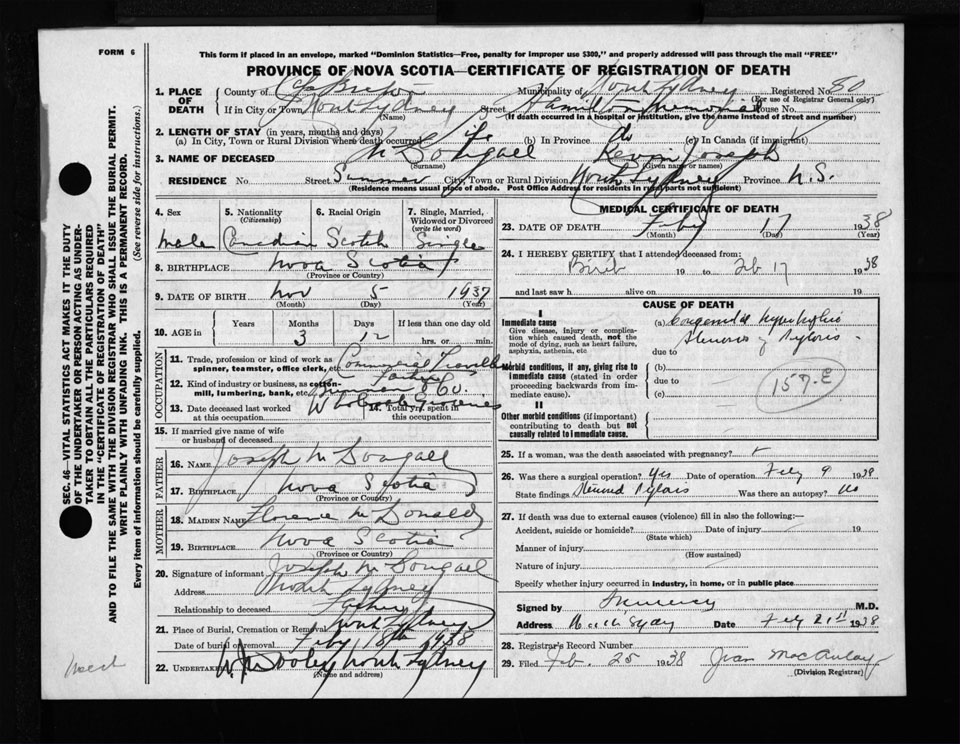 FORM 6
This form if placed in an envelope, marked "Dominion Statistics—Free, penalty for improper use $300," and properly addressed will pass through the mail "FREE"
PROVINCE OF NOVA SCOTIA—CERTIFICATE OF REGISTRATION OF DEATH
1. PLACE OF DEATH
County of Cape Breton Municipality of North Sydney Registered No. 80
(For use of Registrar General only)
If in City or Town North Sydney Street Hamilton Memorial House No.
(Name) (If death occurred in a hospital or institution, give the name instead of street and number)
2. LENGTH OF STAY (in years, months and days)
(a) In City, Town or Rural Division where death occurred Life (b) In Province (c) In Canada (if immigrant)
3. NAME OF DECEASED McDougall Kevin Joseph
(Surname) (Given name or names)
RESIDENCE No Street Summer City, Town or Rural Division North Sydney Province N.S.
(Residence means usual place of abode. Post Office Address for residents in rural parts not sufficient)
4. Sex
Male
5. Nationality
(Citizenship)
Canadian
6. Racial Origin
Scotch
7. Single, Married, Widowed or Divorced
(write the word)
Single
8. BIRTHPLACE Nova Scotia
(Province or Country)
9. DATE OF BIRTH Nov 5 1937
(Month) (Day) (Year)
10. AGE in
Years Months Days If less than one day old
3 12 hrs. or min.
OCCUPATION
11. Trade, profession or kind of work as spinner, teamster, office clerk, etc. Commercial Traveller
Father
12. Kind of industry or business, as cotton-mill, lumbering, bank, etc.
Wholesale Groceries
13. Date deceased last worked at this occupation
14. Total yrs. spent in this occupation
15. If married give name of wife or husband of deceased
FATHER
16. NAME Joseph McDougall
17. BIRTHPLACE Nova Scotia
(Province or Country)
MOTHER
18. MAIDEN NAME Florence McDonald
19. BIRTHPLACE Nova Scotia
(Province or Country)
20. Signature of informant Joseph McDougall
Address North Sydney
Relationship to deceased Father
21. Place of Burial, Cremation or Removal North Sydney
Date of burial or removal Feby 18th 1938
22. Undertaker W. J. Dooley North Sydney
(Name and address)
MEDICAL CERTIFICATE OF DEATH
23. DATE OF DEATH Feby 17 1938
(Month) (Day) (Year)
24. I HEREBY CERTIFY that I attended deceased from:
Birth 19 to Feb 17 1938
and last saw h alive on 19
CAUSE OF DEATH
I
Immediate cause
Give disease, injury or complication which caused death, not the mode of dying, such as heart failure, asphyxia, asthenia, etc
Morbid conditions, if any, giving rise to immediate cause (stated in order proceeding backwards from immediate cause).
II
Other morbid conditions (if important) contributing to death but not causally related to immediate cause.
(a) Congenital Hypertrophic
Stenosis of Pyloris
due to
(b)
due to
(c)
157-E
25. If a woman, was the death associated with pregnancy?
26. Was there a surgical operation? Yes Date of operation Feby 9 1938
State findings Stenosed Pyloris Was there an autopsy? No
27. If death was due to external causes (violence) fill in also the following:—
Accident, suicide or homicide? Date of injury 19
(State which)
Manner of injury
(How sustained)
Nature of injury
Specify whether injury occurred in industry, in home, or in public place
Signed by M.D.
Address North Sydney Date Feby 21st 1938
28. Registrar's Record Number
29. Filed Feb. 25 1938 Jean MacAulay
(Division Registrar)
SEC. 46—VITAL STATISTICS ACT MAKES IT THE DUTY OF THE UNDERTAKER OR PERSON ACTING AS UNDERTAKER TO OBTAIN ALL THE PARTICULARS REQUIRED IN THE "CERTIFICATE OF REGISTRATION OF DEATH" AND TO FILE THE SAME WITH THE DIVISION REGISTRAR WHO SHALL ISSUE THE BURIAL PERMIT.
WRITE PLAINLY WITH UNFADING INK. THIS IS A PERMANENT RECORD.
Every item of information should be carefully supplied. (See reverse side for instructions.)